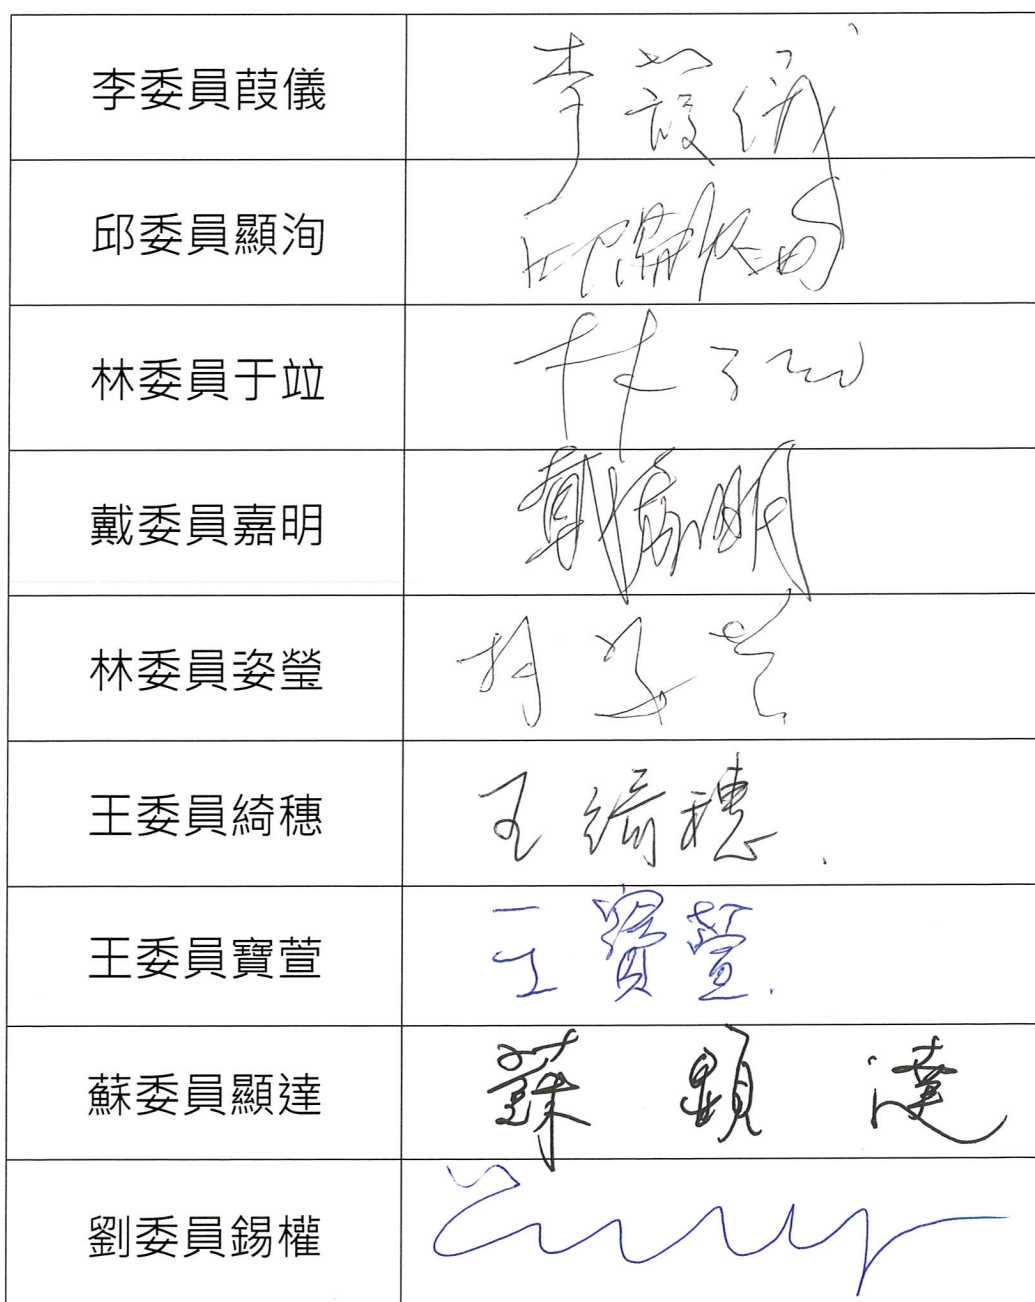 李委員葭儀 李葭儀
邱委員顯洵 邱顯洵
林委員于竝 林于竝
戴委員嘉明 戴嘉明
林委員姿瑩
王委員綺穗 王綺穗
王委員寶萱 王寶萱
蘇委員顯達 蘇顯達
劉委員錫權